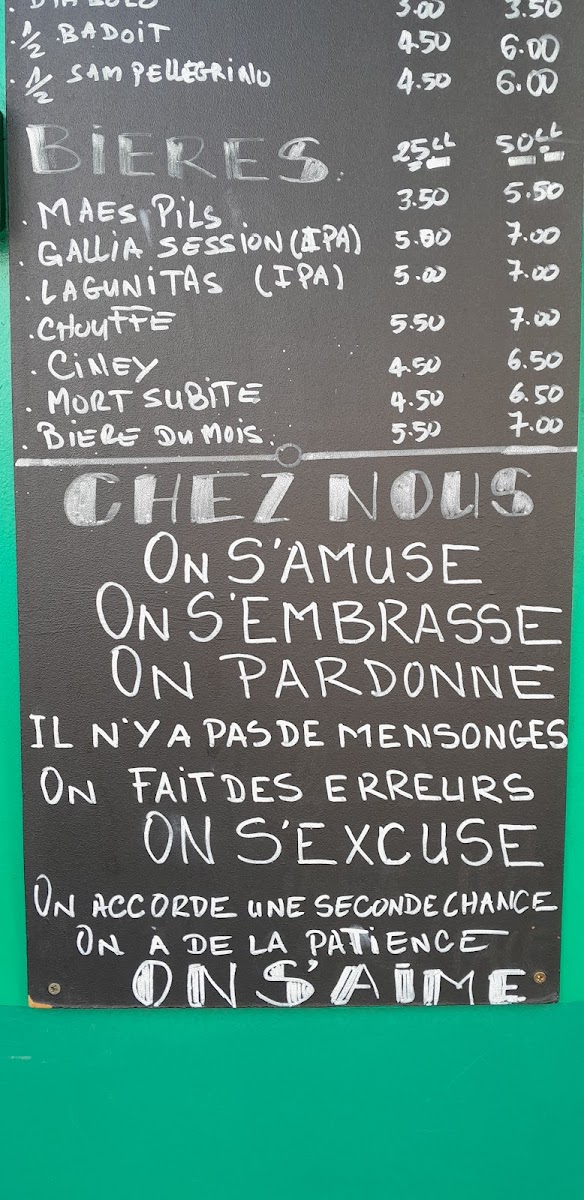 . DIABOLO 3.00 3.50
. 1/2 BADOIT 4.50 6.00
. 1/2 SAM PELLEGRINO 4.50 6.00
BIERES. 25CL 50CL
. MAES PILS 3.50 5.50
. GALLIA SESSION (IPA) 5.00 7.00
. LAGUNITAS (IPA) 5.00 7.00
. CHOUFFE 5.50 7.00
. CINEY 4.50 6.50
. MORT SUBITE 4.50 6.50
. BIERE DU MOIS. 5.50 7.00
CHEZ NOUS
ON S'AMUSE
ON S'EMBRASSE
ON PARDONNE
IL N'Y A PAS DE MENSONGES
ON FAIT DES ERREURS
ON S'EXCUSE
ON ACCORDE UNE SECONDE CHANCE
ON A DE LA PATIENCE
ON S'AIME